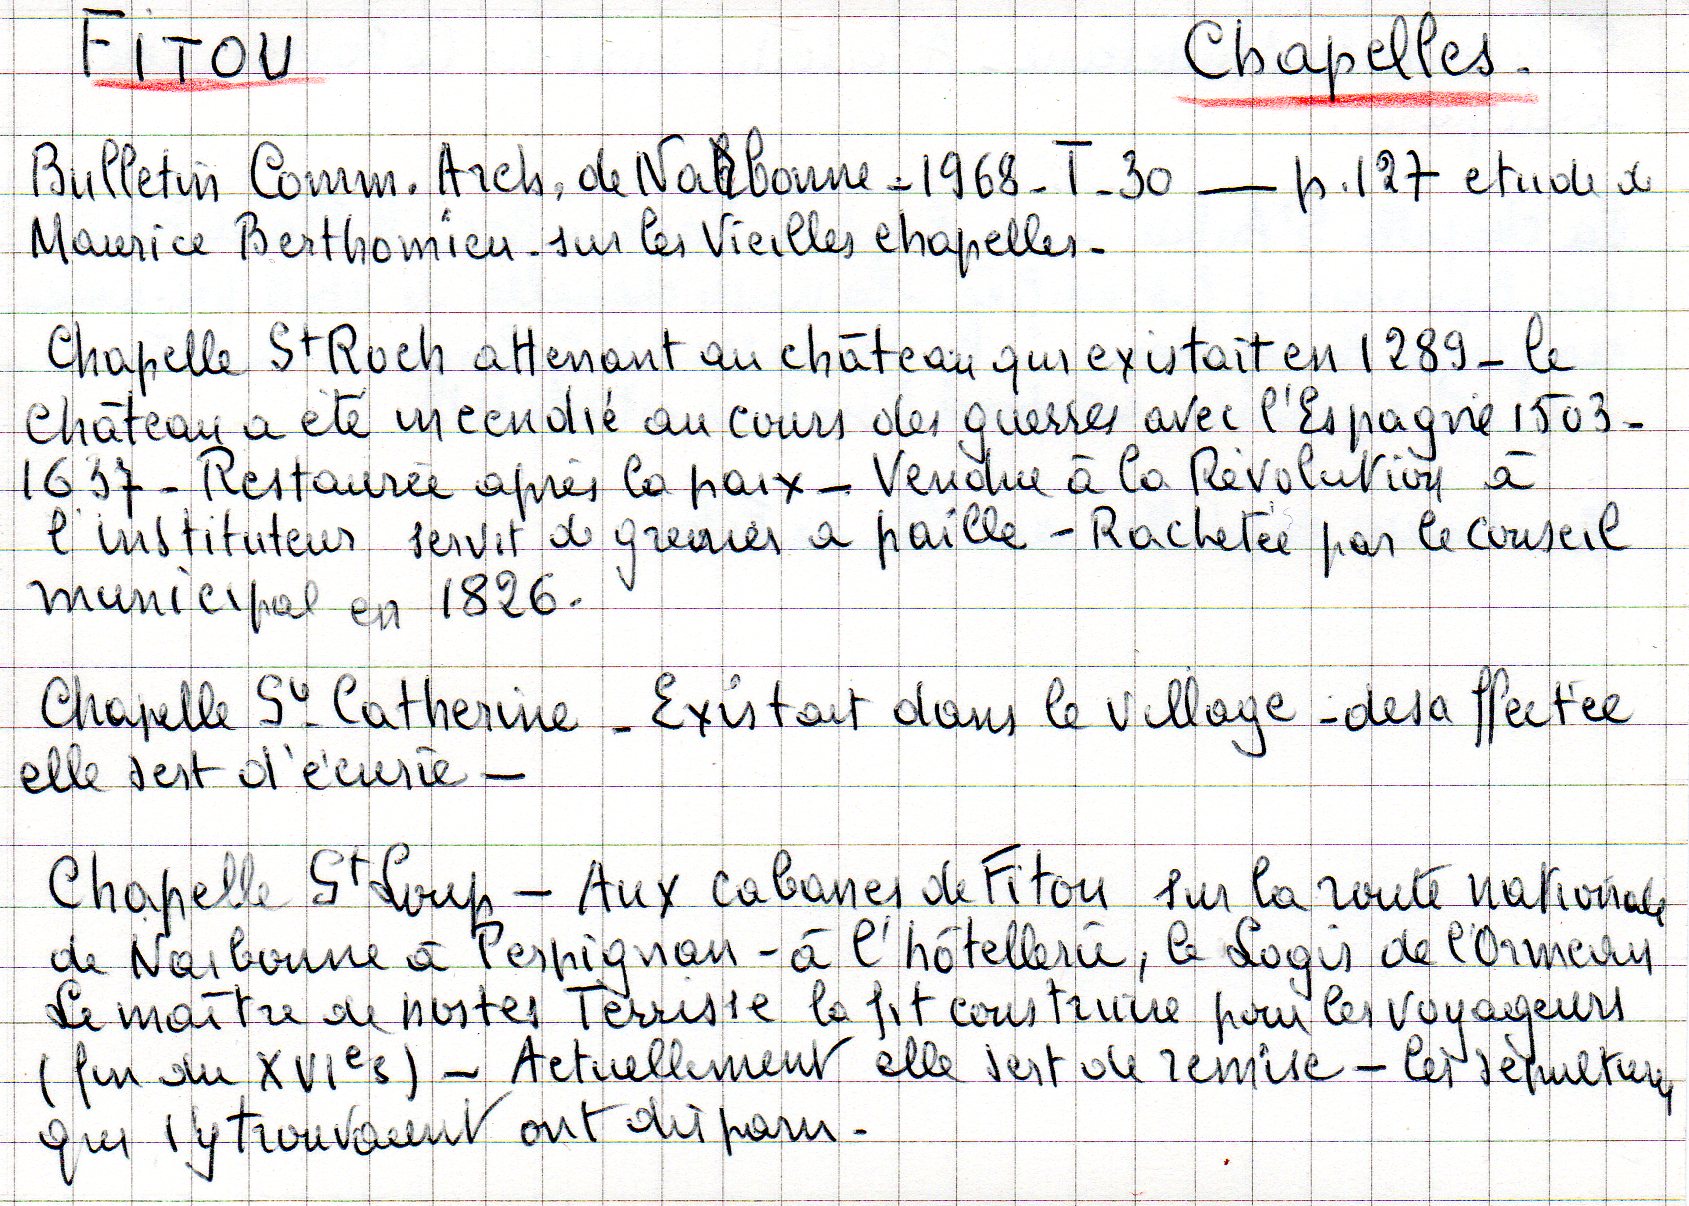 FITOU Chapelles.
Bulletin Comm. Arch. de Narbonne - 1968 - T - 30 — p. 127 etude de
Maurice Berthomieu - sur les Vieilles chapelles -
Chapelle St Roch attenant au château qui existait en 1289 - le
château a été incendié au cours des guerres avec l'Espagne 1503 -
1637 - Restaurée après la paix - Vendue à la Révolution à
l'instituteur servit de grenier a paille - Rachetée par le conseil
municipal en 1826.
Chapelle Ste Catherine - Existait dans le village - desaffectée
elle sert d'écurie -
Chapelle St Loup - Aux cabanes de Fitou sur la route nationale
de Narbonne à Perpignan - à l'hôtellerie, le Logis de l'Ormeau
Le maître de postes Terrisse la fit construire pour les voyageurs
(fin du XVIe s) - Actuellement elle sert de remise - les sépultures
qui s'y trouvaient ont disparu.